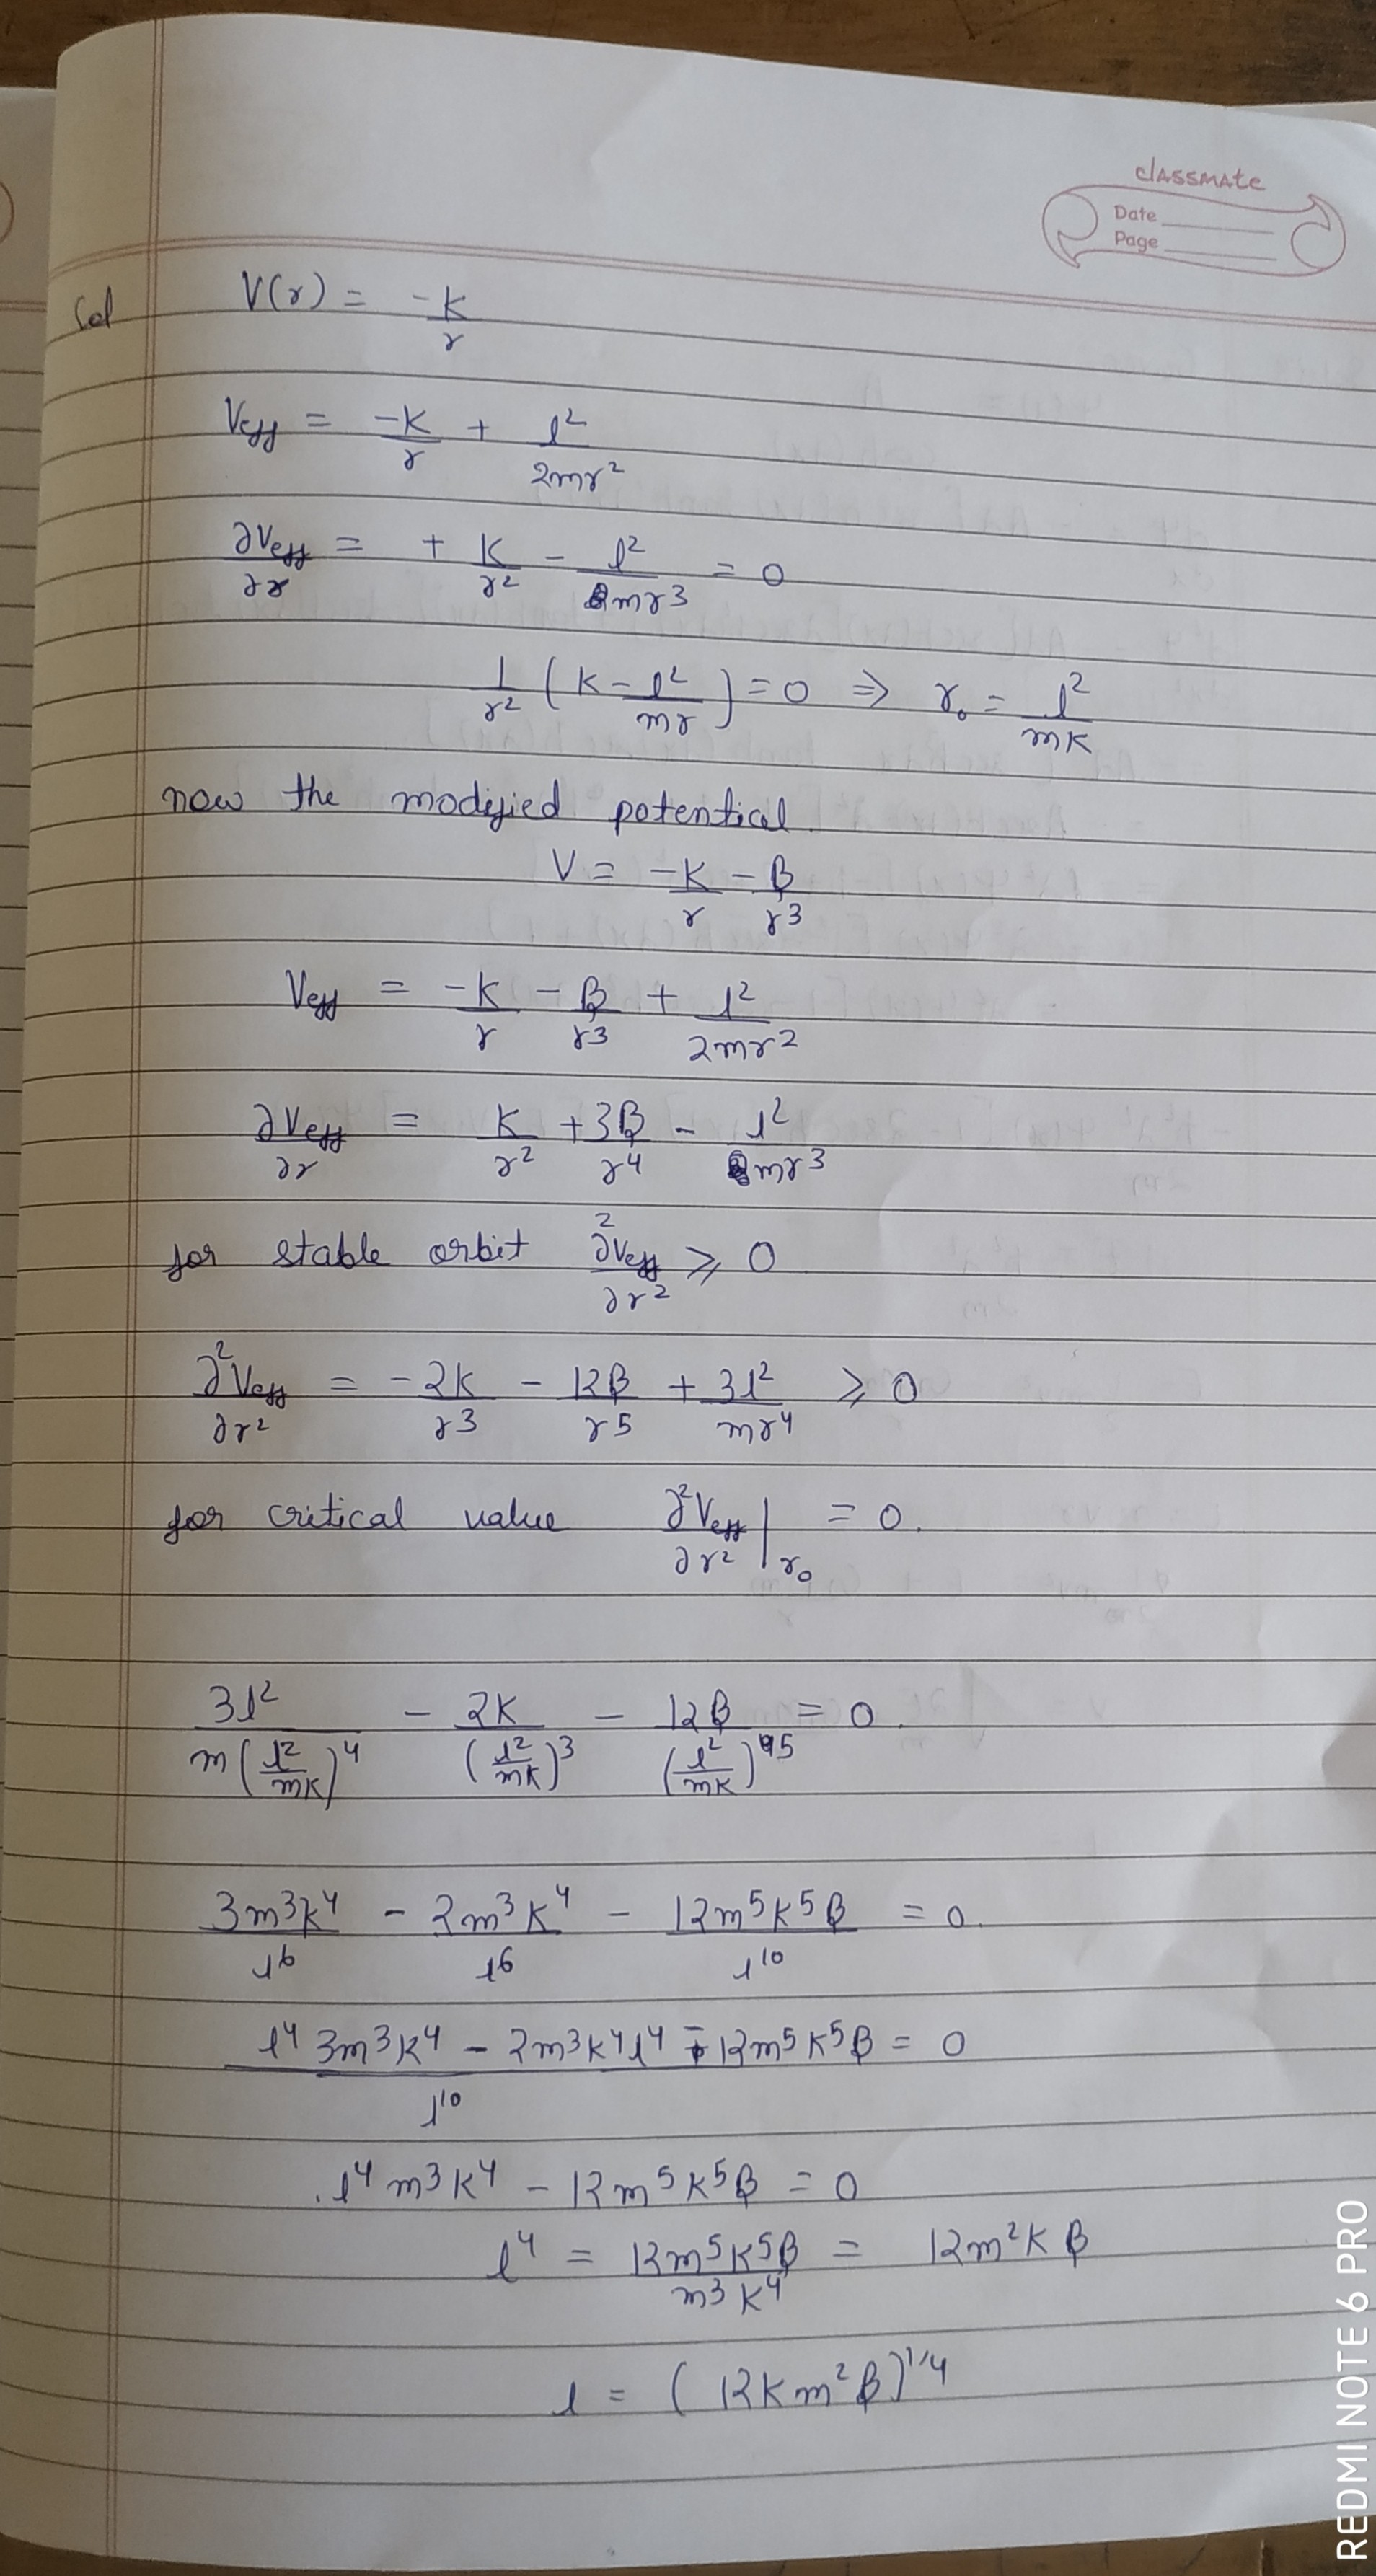 classmate
Date
Page
Sol V(r) = -K/r
Veff = -K/r + l²/2mr²
∂Veff/∂r = + K/r² - l²/mr³ = 0
1/r² (K - l²/mr) = 0 ⇒ r₀ = l²/mK
now the modified potential
V = -K/r - β/r³
Veff = -K/r - β/r³ + l²/2mr²
∂Veff/∂r = K/r² + 3β/r⁴ - l²/mr³
for stable orbit ∂²Veff/∂r² ⩾ 0
∂²Veff/∂r² = -2K/r³ - 12β/r⁵ + 3l²/mr⁴ ⩾ 0
for critical value ∂²Veff/∂r² |r₀ = 0.
3l²/m(l²/mK)⁴ - 2K/(l²/mK)³ - 12β/(l²/mK)⁵ = 0.
3m³K⁴/l⁶ - 2m³K⁴/l⁶ - 12m⁵K⁵β/l¹⁰ = 0.
l⁴ 3m³K⁴ - 2m³K⁴l⁴ - 12m⁵K⁵β/l¹⁰ = 0
l⁴m³K⁴ - 12m⁵K⁵β = 0
l⁴ = 12m⁵K⁵β/m³K⁴ = 12m²Kβ
l = (12Km²β)^1/4
REDMI NOTE 6 PRO